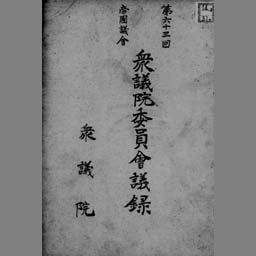 第六十三回
帝國議會
衆議院委員會議録
衆議院